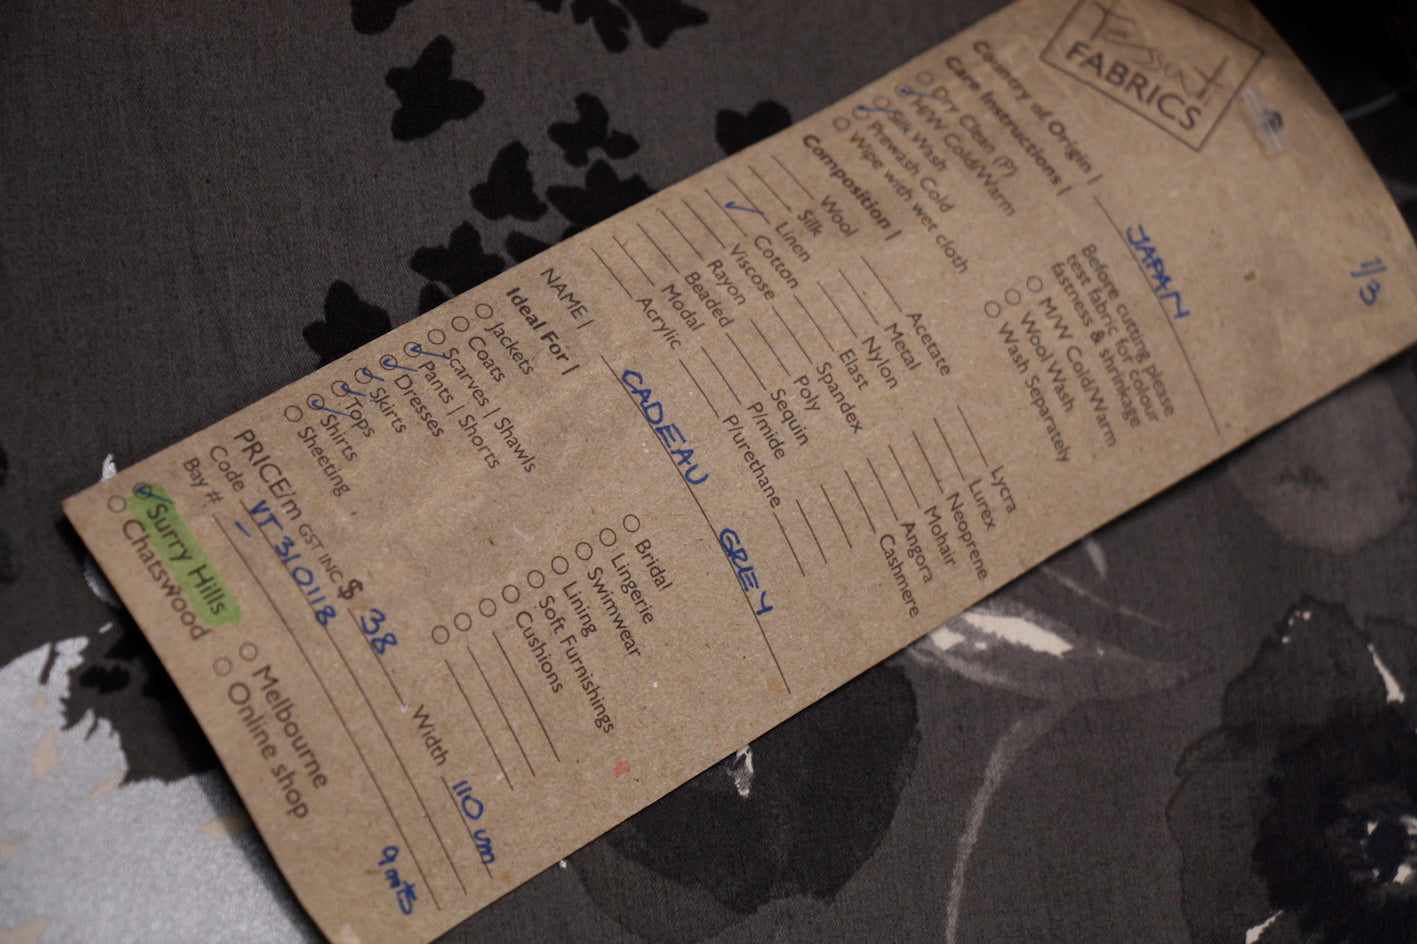 Tessuti
FABRICS
1/3
Country of Origin | JAPAN
Care Instructions |
Dry Clean (P)
H/W Cold/Warm
Silk Wash
Prewash Cold
Wipe with wet cloth
Before cutting please
test fabric for colour
fastness & shrinkage
M/W Cold/Warm
Wool Wash
Wash Separately
Composition |
Wool
Silk
Linen
✓ Cotton
Viscose
Rayon
Beaded
Modal
Acrylic
Acetate
Metal
Nylon
Elast
Spandex
Poly
Sequin
P/mide
P/urethane
Lycra
Lurex
Neoprene
Mohair
Angora
Cashmere
NAME | CADEAU GREY
Ideal For |
Jackets
Coats
Scarves | Shawls
Pants | Shorts
Dresses
Skirts
Tops
Shirts
Sheeting
Bridal
Lingerie
Swimwear
Lining
Soft Furnishings
Cushions
PRICE/m GST INC $ 38 Width 110 cm
Code VT310118
Bay # - 9 mts
Surry Hills
Chatswood
Melbourne
Online shop